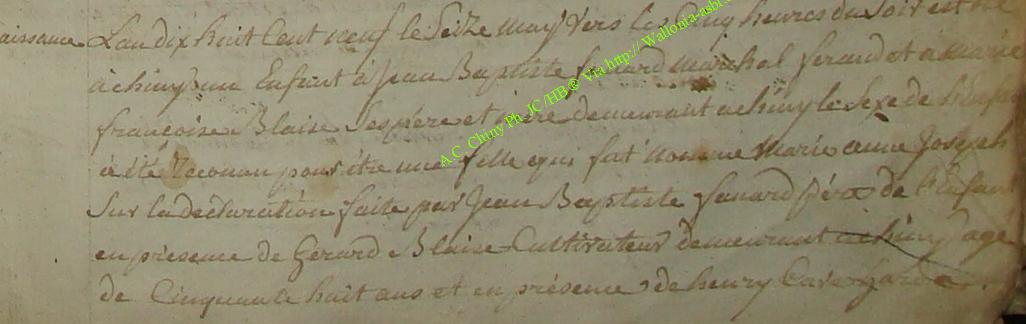 aissance L'an dix huit Cent neuf le Seize may vers les Cinq heures du Soir est né
a chiny un Enfant à Jean Baptiste fanard marchal ferand et a marie
françoise Blaise Ses père et mere demeurant a chiny le Sexe de
à été reconnu pour être une fille qui fut nommé Marie anne Joseph
Sur la declaration faite par Jean Baptiste fanard père de l'Enfant
en présence de Gerard Blaise Cultivateur demeurant a chiny agé
de Cinquante huit ans et en présence de henry garde
A.C. Chiny Ph. JC /HB® Via http:// Wallonia-asbl